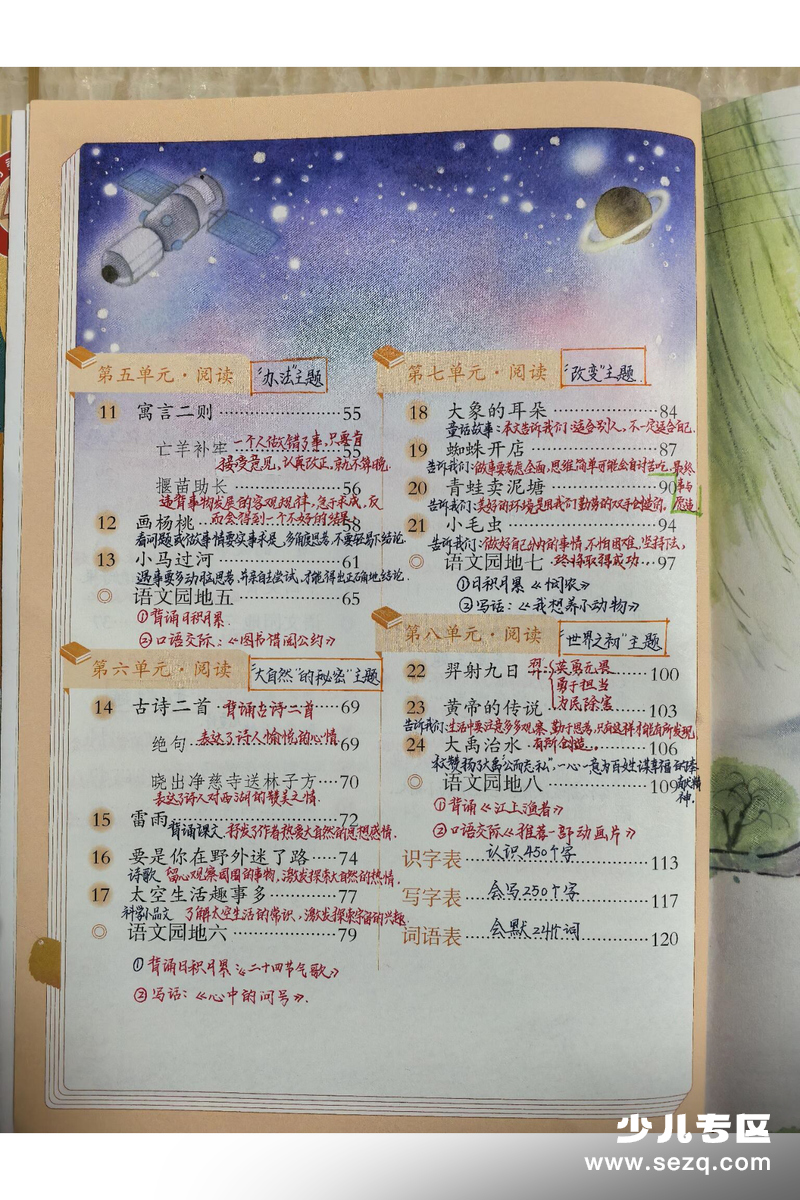 第五单元·阅读 "办法"主题
11 寓言二则 55
亡羊补牢 一个人做错了事,只要肯
接受意见,认真改正,就不算晚.
揠苗助长 56
违背事物发展的客观规律,急于求成,反
而会得到一个不好的结果
12 画杨桃 58
看问题或做事情要实事求是,多角度思考,不要轻易下结论.
13 小马过河 61
遇事要多动脑思考,并亲自去尝试,才能得出正确地结论.
语文园地五 65
①背诵日积月累.
②口语交际:《图书借阅公约》
第六单元·阅读 "大自然"的秘密"主题
14 古诗二首·背诵古诗二首 69
绝句 表达了诗人愉悦的心情 69
晓出净慈寺送林子方 70
表达了诗人对西湖的赞美之情.
15 雷雨 72
背诵课文.抒发了作者热爱大自然的思想感情.
16 要是你在野外迷了路 74
诗歌 留心观察周围的事物,激发探索大自然的热情.
17 太空生活趣事多 77
科学小品文 了解太空生活的常识,激发探索宇宙的兴趣.
语文园地六 79
①背诵日积月累:《二十四节气歌》
②写话:《心中的问号》.
第七单元·阅读 "改变"主题
18 大象的耳朵 84
童话故事:本文告诉我们:适合别人,不一定适合自己.
19 蜘蛛开店 87
告诉我们:做事要考虑全面,思维简单可能会自讨苦吃.最终
事与
愿违
20 青蛙卖泥塘 90
告诉我们:美好的环境是用我们勤劳的双手创造的.
21 小毛虫 94
告诉我们:做好自己分内的事情,不怕困难,坚持下去,
语文园地七 终将取得成功 97
①日积月累《悯农》
②写话:《我想养小动物》
第八单元·阅读 "世界之初"主题
22 羿射九日 羿: 英勇无畏 100
勇于担当
为民除害
23 黄帝的传说 103
告诉我们:生活中要注意多多观察,勤于思考,只有这样才能有所发现,
有所创造.
24 大禹治水 106
本文赞扬了大禹"公而忘私",一心一意为百姓谋幸福的奉
献精
神.
语文园地八 109
①背诵《江上渔者》
②口语交际《推荐一部动画片》
识字表 认识450个字 113
写字表 会写250个字 117
词语表 会默 个词 120
少儿专区
www.sezq.com